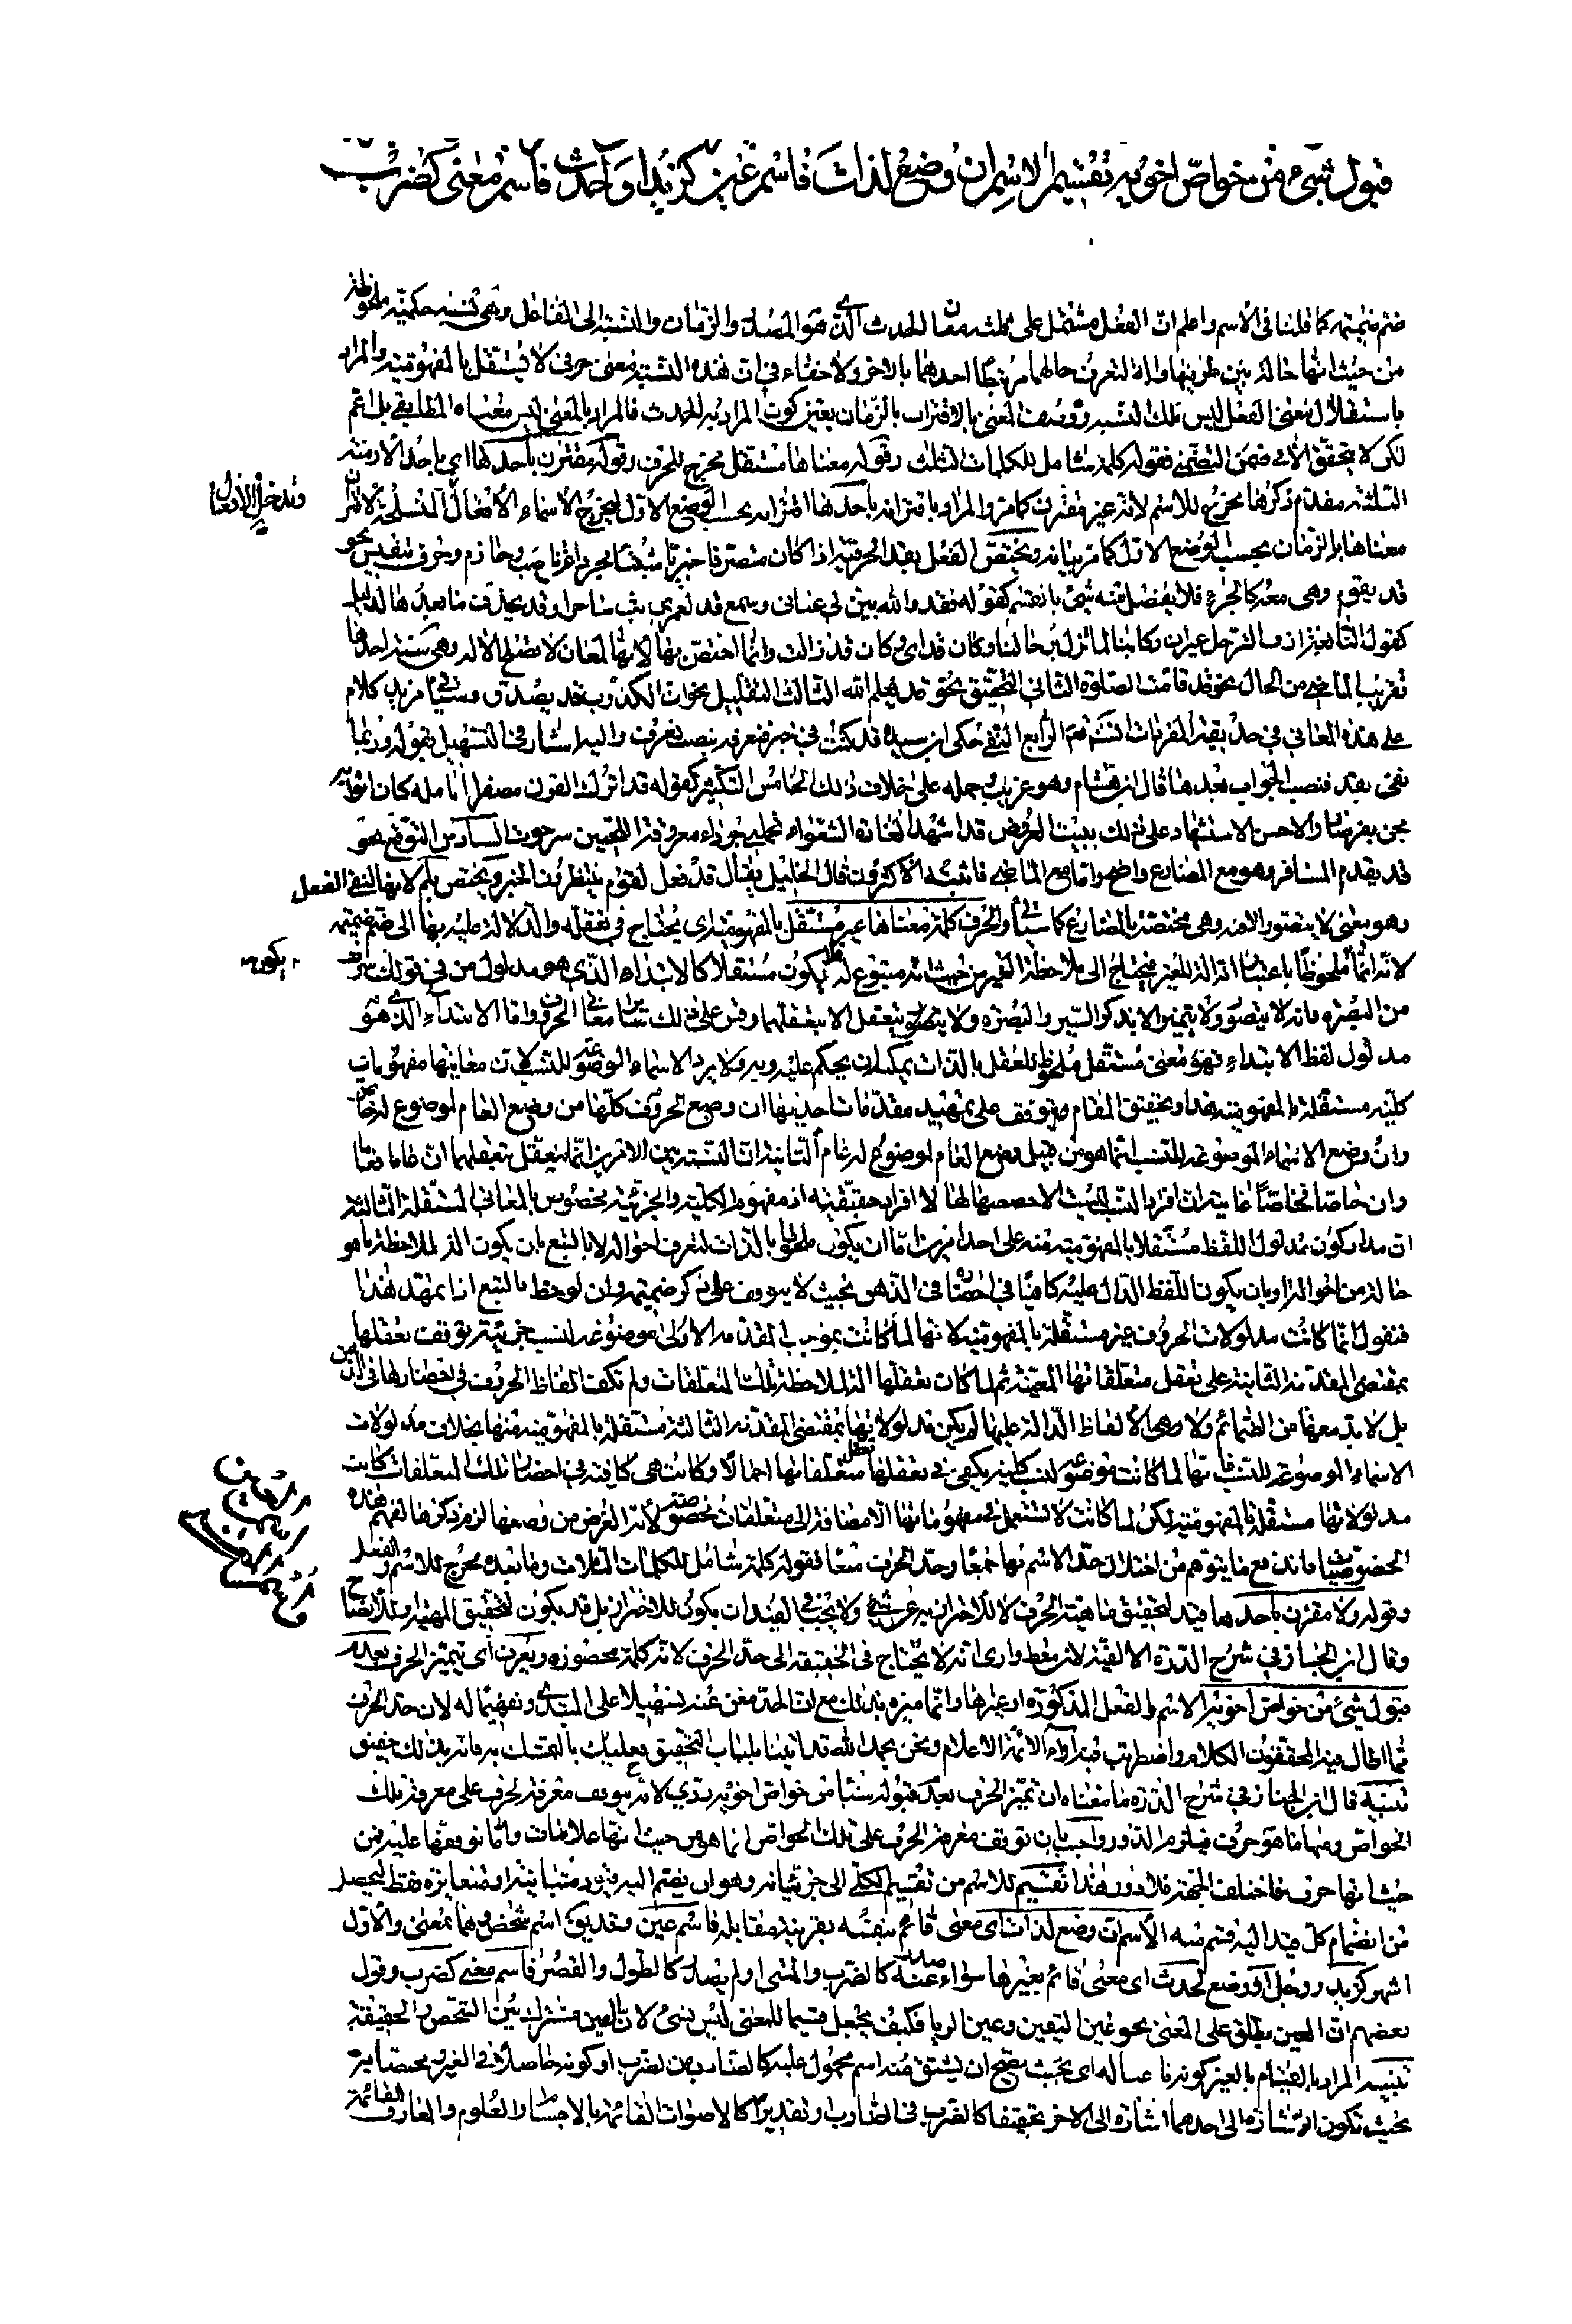 قبول شیء من خواصّ اخویه تقسیم الاسم ان وضع لذات فاسم عین کزید او لحدث فاسم معنی کضرب
ضم ضمیمته کما قلنا فی الاسم واعلم ان الفعل مشتمل علی ثلثه معان الحدث الذی هو المصدر والزمان والنسبه الی الفاعل وهی نسبه حکمیه ملحوظه
من حیث انها حاله بین طرفیها واله لتعرف حالهما مرتبطا احدهما بالاخر ولا خفاء فی ان هذه النسبه معنی حرفی لا یستقل بالمفهومیه والمراد
باستقلال معنی الفعل لیس تلک النسبه ووصف المعنی بالاقتران بالزمان یعین کون المراد به الحدث فالمراد بالمعنی لیس معناه المطابقی بل اعم
لکن لا یتحقق الا فی ضمن التضمنی فقوله کلمه شامل للکلمات الثلث وقوله معناها مستقل مخرج للحرف وقوله مقترن باحدها ای باحد الازمنه
الثلثه مقدم ذکرها مخرج للاسم لانه غیر مقترن کما مر والمراد باقترانه باحدها اقترانه بحسب الوضع الاول لیخرج الاسماء الافعال المنسلخه لاقتران
وتدخل الافعال
معناها بالزمان بحسب الوضع الاول کما مر بیانه ویختص الفعل بقد الحرفیه اذا کان متصرفا خبریا مثبتا مجردا عن ناصب وجازم وحرف تنفیس نحو
قد یقوم وهی معه کالجزء فلا یفصل منه شیئ بالقسم کقوله فقد والله بین لی عنائی وسمع قد لعمری بت ساهرا وقد یحذف ما بعدها لدلیل
کقول النابغه ازف الترحل غیر ان رکابنا لما تزل برحالنا وکان قد ای وکان قد زالت وانما اختص بها لانها لمعان لا تصلح الا له وهی سته احدها
تقریب الماضی من الحال نحو قد قامت الصلوه الثانی التحقیق نحو قد یعلم الله الثالث التقلیل نحو ان الکذوب قد یصدق وسیاتی مزید کلام
علی هذه المعانی فی حد بقیه المفردات الرابع النفی حکی ابن سیده قد کنت فی خیر فتعرفه بنصب تعرف والیه اشار فی التسهیل بقوله وربما
نفی بقد فنصب الجواب بعدها قال ابن هشام وهو غریب وحمله علی خلاف ذلک الخامس التکثیر کقوله قد اترک القرن مصفرا انامله کان اثوابه
مجت بفرصاد والاحسن الاستشهاد علی ذلک ببیت العروض قد اشهد الغاره الشعواء تحملنی جرداء معروقه اللحیین سرحوب السادس التوقع نحو
قد یقدم المسافر وهو مع المضارع واضح واما مع الماضی فاثبته الاکثرون قال الخلیل یقال قد فعل لقوم ینتظرون الخبر ویختص بلم لانها لنفی الفعل
وهو معنی لا یتصور الا فیه وهی مختصه بالمضارع کما سیاتی والحرف کلمه معناها غیر مستقل بالمفهومیه ای یحتاج فی تعقله والدلاله علیه بها الی ضم ضمیمته
لانه انما ملحوظ باعتبار انه اله للغیر فیحتاج الی ملاحظه الغیر من حیث انه متبوع له فلا یکون مستقلا کالابتداء الذی هو مدلول من فی قولک سرت
یکون
من البصره فانه لا یتصور ولا یتمیز الا بذکر السیر والبصره ولا یتعقل الا بتعقلهما وقس علی ذلک سائر معانی الحروف واما الابتداء الذی هو
مدلول لفظ الابتداء فهو معنی مستقل ملحوظ للعقل بالذات یمکن ان یحکم علیه وبه ولا یرد الاسماء الموضوعه للنسب لان معانیها مفهومات
کلیه مستقله بالمفهومیه هذا وتحقیق المقام یتوقف علی تمهید مقدمات احدیها ان وضع الحروف کلها من وضع العام لموضوع له خاص
وان وضع الاسماء الموضوعه للنسب انما هو من قبیل وضع العام لموضوع له عام الثانیه ان النسبه بین الامرین انما یتعقل بتعقلهما ان عاما فعاما
وان خاصا فخاصا غایته ان افراد النسب لیست الا حصصها لا افراد حقیقیه اذ مفهوم الکلیه والجزئیه مخصوص بالمعانی المستقله الثالثه
ان مدار کون مدلول اللفظ مستقلا بالمفهومیه منه علی احد امرین اما ان یکون ملحوظا بالذات لتعرف احواله لا بالتبع بان یکون اله لملاحظه ما هو
حاله من احواله او بان یکون اللفظ الدال علیه کافیا فی احضاره فی الذهن بحیث لا یتوقف علی ذکر ضمیمته وان لوحظ بالتبع اذا تمهد هذا
فنقول انما کانت مدلولات الحروف غیر مستقله بالمفهومیه لانها لما کانت بموجب المقدمه الاولی موضوعه لنسب جزئیه توقفت تعقلها
بمقتضی المقدمه الثانیه علی تعقل متعلقاتها المعینه ثم لما کان تعقلها اله لملاحظه تلک المتعلقات ولم تکف الفاظ الحروف فی احضارها فی الذهن
بل لا بد معها من الضمائم ولا وهی الالفاظ الداله علیها لم یکن مدلولاتها بمقتضی المقدمه الثالثه مستقله بالمفهومیه منها بخلاف مدلولات
الاسماء الموضوعه للنسب فانها لما کانت موضوعه لنسب کلیه یکفی فی تعقلها تعقل متعلقاتها اجمالا وکانت هی کافیه فی احضار تلک المتعلقات کانت
مدلولاتها مستقله بالمفهومیه لکن لما کانت لا تستعمل فی مفهوماتها الا مضافه الی متعلقات مخصوصه لان الغرض من وضعها لزم ذکرها لفهم هذه
الخصوصیات فاندفع ما یتوهم من اختلال حد الاسم بها جمعا وحد الحرف منعا فقوله کلمه شامل للکلمات الثلاث وما بعده مخرج للاسم والفعل
وقوله ولا مقترن باحدها قید لتحقیق ماهیه الحرف لا للاحتراز به عن شیئ ولا یجب فی القید ان یکون للاحتراز بل قد یکون لتحقیق المهیه وللایضاح
وقال ابن الخباز فی شرح الدره الالفیه لابن معط واری انه لا یحتاج فی الحقیقه الی حد الحرف لانه کلمه محصوره ویعرف ای یتمیز الحرف بعدم
قبول شیئ من خواص اخویه الاسم والفعل المذکوره او غیرها وانما میزه بذلک مع ان الحد مغن عنه تسهیلا علی المبتدی وتفهیما له لان حد الحرف
مما اطال فیه المحققون الکلام واضطربت فیه آراء الائمه الاعلام ونحن بحمد الله قد اتینا بلباب التحقیق فعلیک بالتمسک به فانه بذلک حقیق
تنبیه قال ابن الخباز فی شرح الدره ما معناه ان تمییز الحرف بعدم قبوله شیئا من خواص اخویه ردی لانه یتوقف معرفه الحرف علی معرفه تلک
الخواص ومنها ما هو حرف فیلزم الدور واجیب بان توقف معرفه الحرف علی تلک الخواص انما هو من حیث انها علامات واما توقفها علیه فمن
حیث انها حرف فاختلف الجهه فلا دور هذا تقسیم للاسم من تقسیم الکلی الی جزئیاته وهو ان یضم الیه قیود متباینه او متغایره فقط لیحصل
من انضمام کل قید الیه قسم منه الاسم ان وضع لذات ای معنی قائم بنفسه بقرینه مقابله فاسم عین وقد یق اسم شخص وهما بمعنی والاول
اشهر کزید ورجل او وضع لحدث ای معنی قائم بغیرها سواء صدر عنه کالضرب والمشی او لم یصدر کالطول والقصر فاسم معنی کضرب وقول
بعضهم ان العین یطلق علی المعنی نحو عین الیقین وعین الربا فکیف یجعل قسیما للمعنی لیس بشیء لان العین مشترک بین الشخص والحقیقه
تنبیه المراد بالقیام بالغیر کونه ناعتا له ای بحیث یصح ان یشتق منه اسم محمول علیه کالضارب من الضرب او کونه حاصلا فی الغیر مختصا به
بحیث تکون الاشاره الی احدهما اشاره الی الاخر تحقیقا کالضرب فی الضارب او تقدیرا کالاصوات القائمه بالاجسام والعلوم والمعارف القائمه